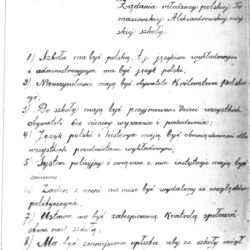 Żądania młodzieży polskiej To
maszowskiej Aleksandrowskiej miej
skiej szkoły.
1) Szkoła ma być polską, t. j. językiem wykładowym
i administracyjnym ma być język polski,
2) Nauczycielami mają być obywatele Królestwa Polskie
go.
3) Do szkoły mają być przyjmowane dzieci wszystkich
obywateli bez różnicy wyznania i pochodzenia;
4) Język polski i historya mają być obowiązkowemi dla
wszystkich przedmiotami wykładowymi;
5) System policyjny i związane z nim instytucje mają być
zniesione.
6) Żaden z uczni nie może być wydalony ze względów
politycznych.
7) Ustawa ma być zabezpieczona. Kontrolę społeczeń
stwa nad szkołą;
8) Ma być zmniejszona opłata, aby ze szkoły mogli